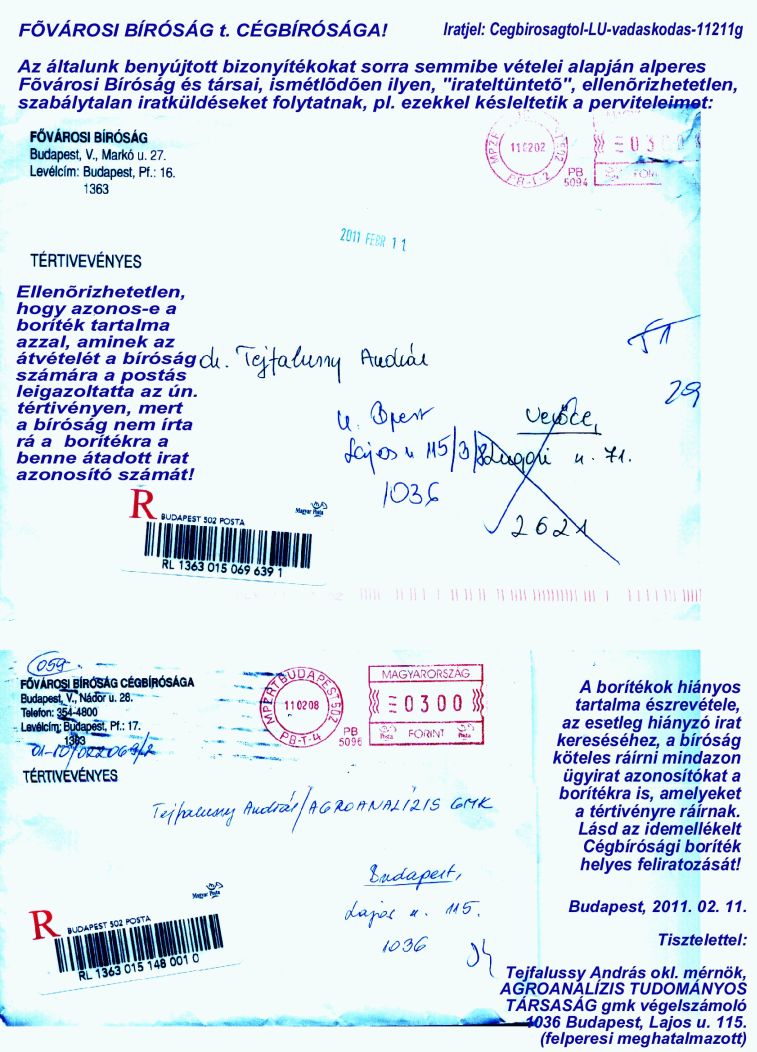 FÕVÁROSI BÍRÓSÁG t. CÉGBÍRÓSÁGA!
Iratjel: Cegbirosagtol-LU-vadaskodas-11211g
Az általunk benyújtott bizonyítékokat sorra semmibe vételei alapján alperes
Fõvárosi Bíróság és társai, ismétlõdõen ilyen, "irateltüntetõ", ellenõrizhetetlen,
szabálytalan iratküldéseket folytatnak, pl. ezekkel késleltetik a perviteleimet:
FŐVÁROSI BÍRÓSÁG
Budapest, V., Markó u. 27.
Levélcím: Budapest, Pf.: 16.
1363
110202
PB-T-2
PB
5094
0300
2011 FEBR 11
TÉRTIVEVÉNYES
Ellenõrizhetetlen,
hogy azonos-e a
boríték tartalma
azzal, aminek az
átvételét a bíróság
számára a postás
leigazoltatta az ún.
tértivényen, mert
a bíróság nem írta
rá a borítékra a
benne átadott irat
azonosító számát!
dr. Tejfalussy András
u. Bpest
Lajos u 115/3/8
1036
Verőce,
u. 71.
2621
29
R
BUDAPEST 502 POSTA
Magyar Posta
RL 1363 015 069 639 1
059
FŐVÁROSI BÍRÓSÁG CÉGBÍRÓSÁGA
Budapest, V., Nádor u. 28.
Telefon: 354-4800
Levélcím: Budapest, Pf.: 17.
1363
TÉRTIVEVÉNYES
MPZRTBUDAPEST502
110208
PB-T-4
PB
5096
MAGYARORSZÁG
0300
Posta FORINT Posta
Tejfalussy András/AGROANALÍZIS GMK
Budapest,
Lajos u. 115.
1036
R
BUDAPEST 502 POSTA
Magyar Posta
RL 1363 015 148 001 0
A borítékok hiányos
tartalma észrevétele,
az esetleg hiányzó irat
kereséséhez, a bíróság
köteles ráírni mindazon
ügyirat azonosítókat a
borítékra is, amelyeket
a tértivényre ráírnak.
Lásd az idemellékelt
Cégbírósági boríték
helyes feliratozását!
Budapest, 2011. 02. 11.
Tisztelettel:
Tejfalussy András okl. mérnök,
AGROANALÍZIS TUDOMÁNYOS
TÁRSASÁG gmk végelszámoló
1036 Budapest, Lajos u. 115.
(felperesi meghatalmazott)